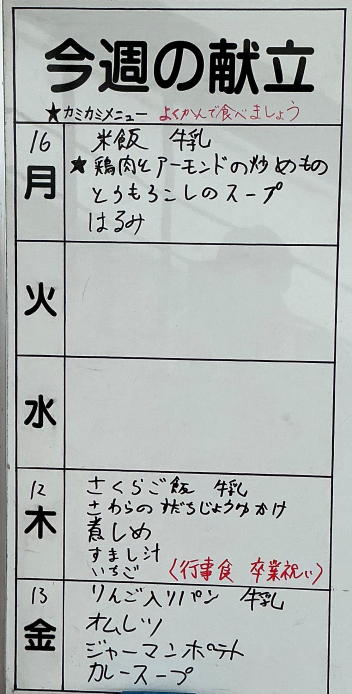 今週の献立
★カミカミメニュー よくかんで食べましょう
16
月
米飯 牛乳
★鶏肉とアーモンドの炒めもの
とうもろこしのスープ
はるみ
火
水
12
木
さくらご飯 牛乳
さわらのすだちじょうゆかけ
煮しめ
すまし汁
いちご 〈行事食 卒業祝い〉
13
金
りんご入りパン 牛乳
オムレツ
ジャーマンポテト
カレースープ